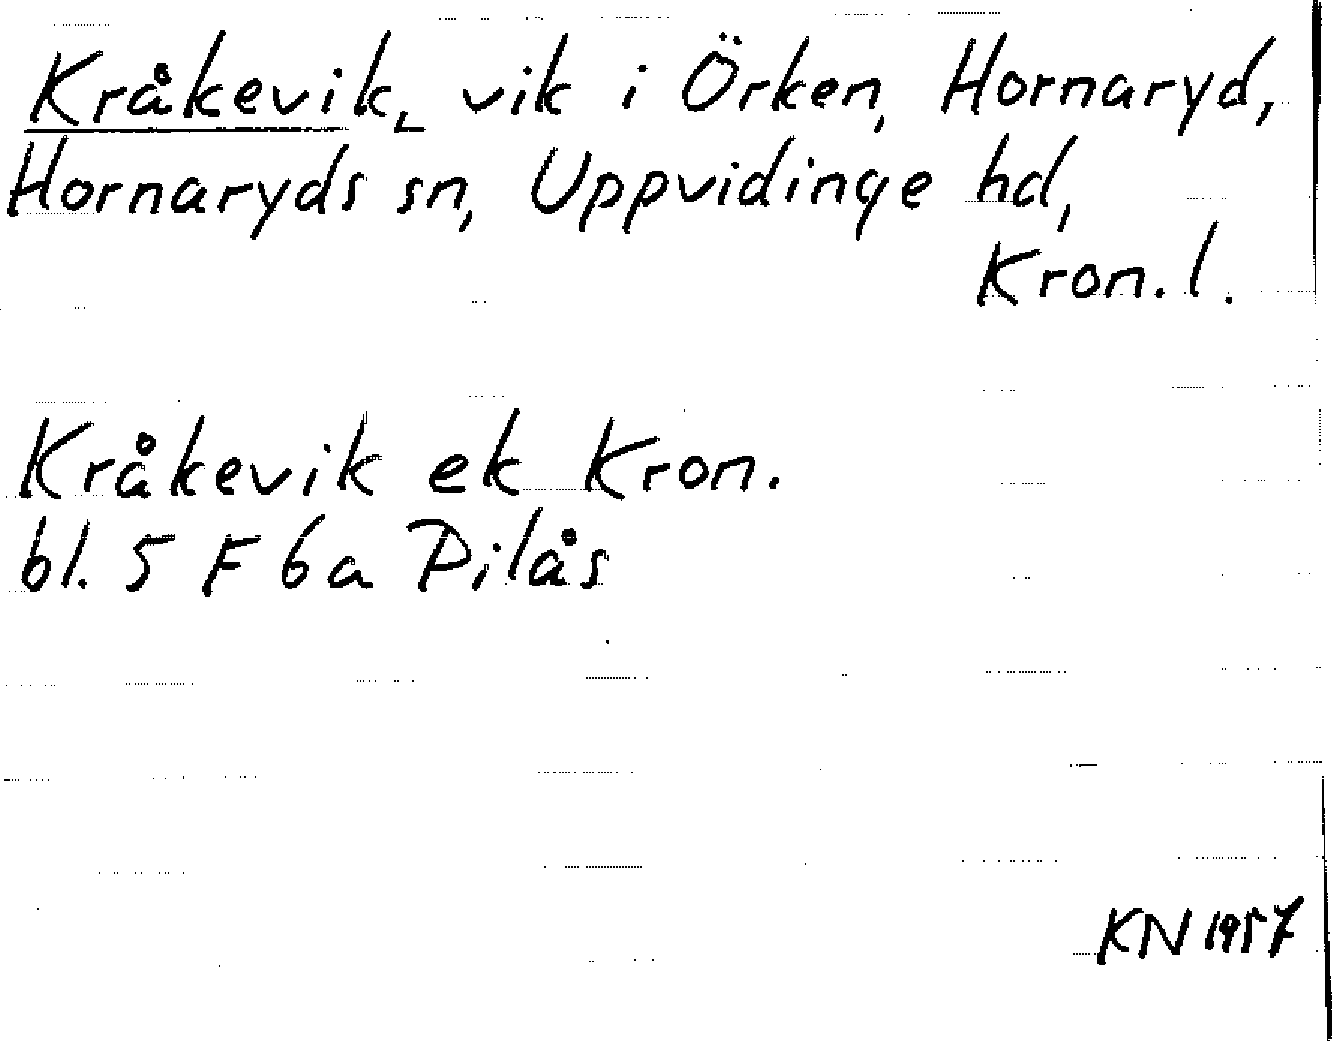 Kråkevik, vik i Örken, Hornaryd,
Hornaryds sn, Uppvidinge hd,
Kron. l.
Kråkevik ek Kron.
bl. 5 F 6a Pilås
KN 1957